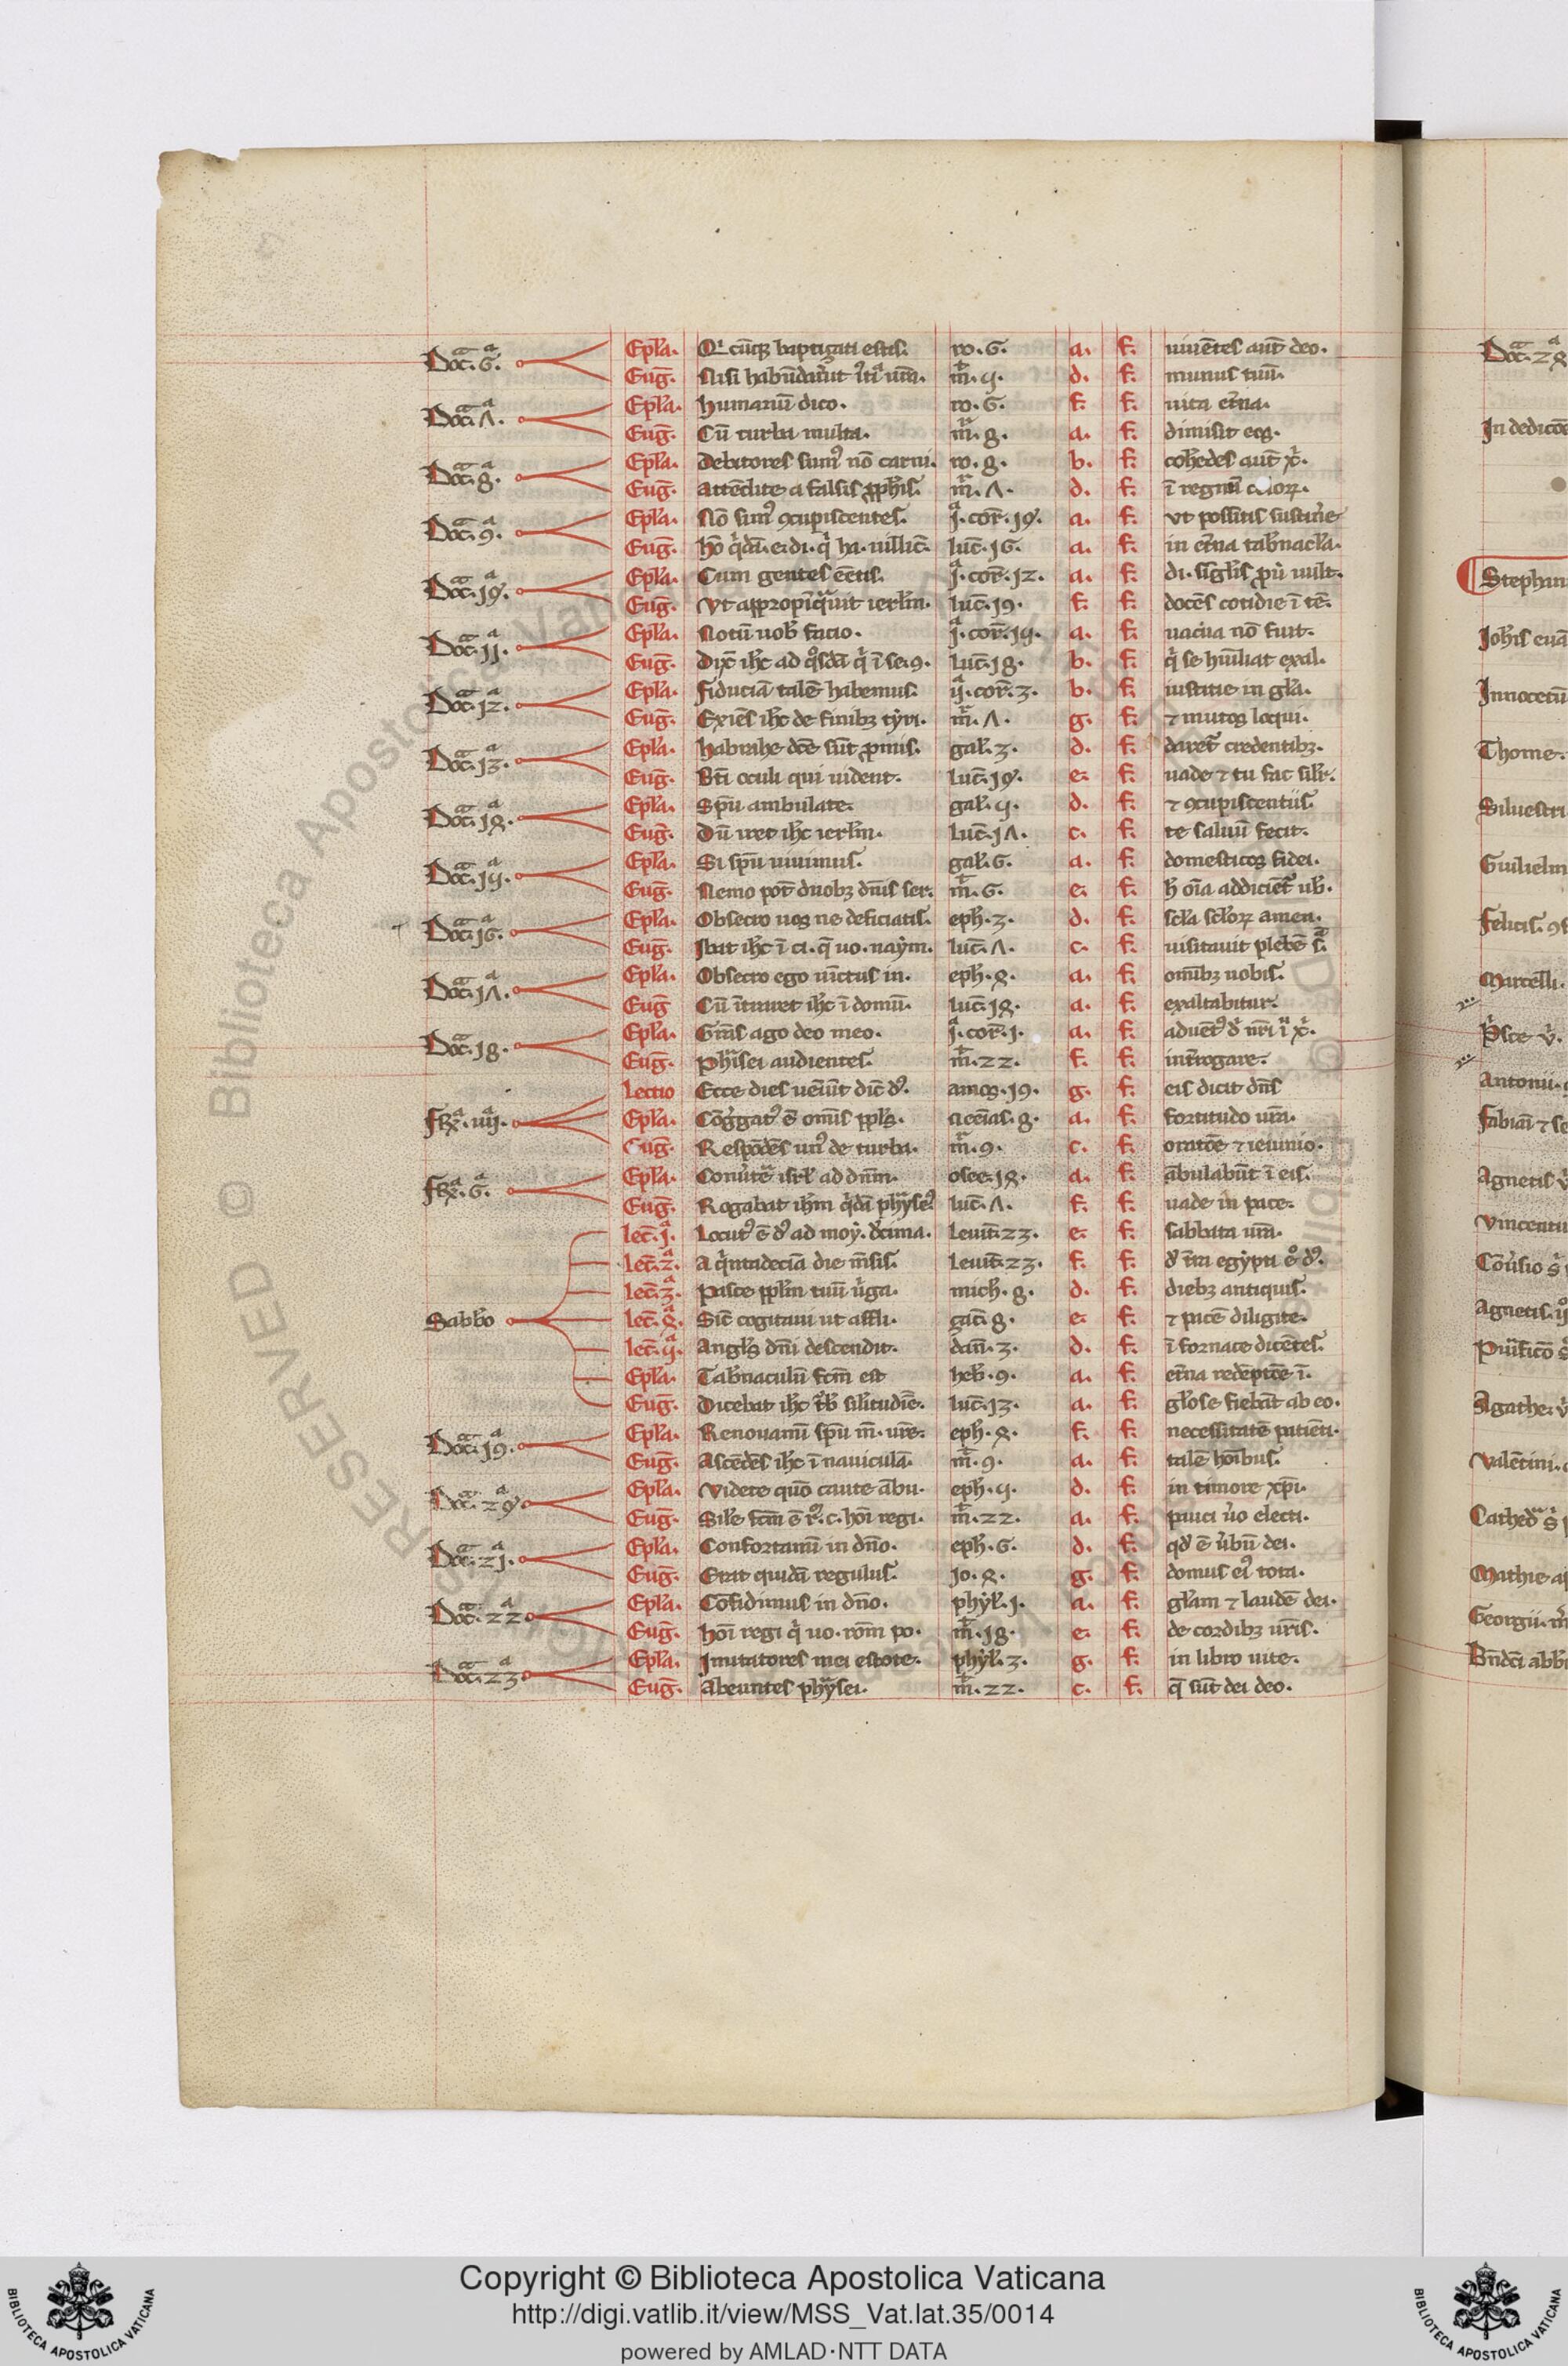 Doc̄a. 6a.
Ep̄la. Qicūq; baptizati estis. ro. 6. a. f. uiuētes aut̄ deo.
Eug̅. Nisi habūdau'it iti͡a ur̄a. m̄. 5. d. f. munus tuū.
Doc̄a. 7a.
Ep̄la. humanū dico. ro. 6. f. f. uita et̄na.
Eug̅. Cū turba multa. m̄r. 8. a. f. dimisit eos.
Doc̄a. 8a.
Ep̄la. debitores sum9 nō carni. ro. 8. b. f. coh'edes aut̄ x̄i.
Eug̅. attēdite a falsis ꝓph̄is. m̄. 7. d. f. ī regnū
Doc̄a. 9a.
Ep̄la. Nō sim9 ꝯcupiscentes. ja. cor̄. 10. a. f. vt possitis sustin'e
Eug̅. hō qidā. ei di. qi ha. uillic̄. luc̄. 16. a. f. in et̄na tab'nac̄la.
Doc̄a. 10a.
Ep̄la. Cum gentes eētis. ja. cor̄. 12. a. f. di. sīgl̄is ꝓu̇ uult.
Eug̅. Vt appropīq̄uit ierl̄m. luc̄. 19. f. f. docēs cotidie ī tē.
Doc̄a. 11a.
Ep̄la. Notū uob' facio. ja. cor̄. 15. a. f. uacua nō fuit.
Eug̅. dix̄ ih̄c ad qosdā qi ī se. 9. luc̄. 18. b. f. qi se hūiliat exal.
Doc̄a. 12a.
Ep̄la. fiduciā talē habemus. ija. cor̄. 3. b. f. iustitie in gl̄a.
Eug̅. Exiēs ih̄c de finib; tyri. m̄r. 7. g. f. ⁊ mutos loqui.
Doc̄a. 13a.
Ep̄la. habrahe dc̄e sūt ꝓmis. gal̄. 3. d. f. daret̄ credentib;.
Eug̅. Bt̄i oculi qui uident. luc̄. 10. e. f. uade ⁊ tu fac sil̄r.
Doc̄a. 14a.
Ep̄la. Sp̄u ambulate. gal̄. 5. d. f. ⁊ ꝯcupiscentiis.
Eug̅. Dū iret ih̄c ierl̄m. luc̄. 17. c. f. te saluū fecit.
Doc̄a. 15a.
Ep̄la. Si sp̄u uiuimus. gal̄. 6. a. f. domesticos fidei.
Eug̅. Nemo pot̄ duob; dn̄is ser. m̄. 6. e. f. h̄ oīa addiciēt̄ ub'.
Doc̄a. 16a.
Ep̄la. Obsecro uos ne deficiatis. eph̄. 3. d. f. scl̄a scl̄oꝝ amen.
Eug̅. Ibat ih̄c ī ci. q̄ uo. naym. luc̄. 7. c. f. uisitauit plebē s̄.
Doc̄a. 17a.
Ep̄la. Obsecro ego uīctus in. eph̄. 4. a. f. omīb; uobis.
Eug̅ Cū ītraret ih̄c ī domū. luc̄. 14. a. f. exaltabitur.
Doc̄a. 18a.
Ep̄la. Grās ago deo meo. ja. cor̄. 1. a. f. aduēt9 d' nr̄i
Eug̅. Ph̄isei audientes. m̄. 22. f. f. int̄rogare.
fr̄a. iiija.
Lectio Ecce dies ueīūt dic̄ d'. amos. 9. g. f. eis dicit dn̄s
Ep̄la. Cōg'gat9 ē omīs ppl̄s. neēias. 8. a. f. fortitudo ur̄a.
Eug̅. Respōdēs un9 de turba. m̄r. 9. c. f. oratōe ⁊ ieiunio.
fr̄a. 6a.
Ep̄la. Conu'te̅ isrl̄ ad dn̄m. osee. 14. a. f. ābulabūt ī eis.
Eug̅. Rogabat ih̄m qidā phyise9 luc̄. 7. f. f. uade in pace.
Sabb̄o
lec̄. ja. Locut9 ē d' ad moy. d'cima. leuit̄. 23. e. f. sabbata ur̄a.
lec̄. 2a. A qintadeciā die m̄sis. leuit̄. 23. f. f. d' t̄ra egypti
lec̄. 3a. Pasce ppl̄m tuū u'ga. mich̄. 8. d. f. dieb; antiquis.
lec̄. 4a. Sic̄ cogitaui ut affli. zac̄. 8. e. f. ⁊ pacē diligite.
lec̄. 5a. Angl̄s dn̄i descendit. dan̄. 3. d. f. ī fornace dicētes.
Ep̄la. Tab'naculū fcm̄ est heb'. 9. a. f. et̄na redēptōe ī.
Eug̅. Dicebat ih̄c tb' sil̄itudīe. luc̄. 13. a. f. gl̄ose fiebāt ab eo.
Doc̄a. 19a.
Ep̄la. Renouamī sp̄u m̄. ur̄e. eph̄. 4. f. f. necessitatē patiēti.
Eug̅. Ascēdēs ih̄c ī nauiculā. m̄. 9. a. f. talē hoībus.
Doc̄a. 20a
Ep̄la. Videte quō caute ābu. eph̄. 5. d. f. in timore xp̄i.
Eug̅. Sil̄e fcm̄ ē r9. c. hoī regi. m̄. 22. a. f. pauci u'o electi.
Doc̄a. 21a.
Ep̄la. Confortamī in dn̄o. eph̄. 6. d. f. qd' ē u'bū dei.
Eug̅. Erat quidā regulus. Jo. 4. g. f. domus ei9 tota.
Doc̄a. 22a
Ep̄la. Cōfidimus in dn̄o. phyl̄. 1. a. f. gl̄am ⁊ laudē dei.
Eug̅. hoī regi qi uo. rōm po. m̄. 18. e. f. de cordib; ur̄is.
Doc̄a. 23a
Ep̄la. Imitatores mei estote. phyl̄. 3. g. f. in libro uite.
Eug̅. Abeuntes phyisei. m̄. 22. c. f. q̄ sūt dei deo.
Doc̄a. 24
In dedicatōe
Stephan
Joh̄is euā
Innocetū
Thome.
Siluestri
Guilielm
Felicis.
Marcelli.
P'sce v̄.
Antonii.
Fabiāi ⁊ se
Agnetis
Vincentii
Cōu'sio
Agnetis.
Pu'ificō
Agathe.
Valētini.
Cathed'
Mathie
Georgii.
Bn̄dc̄i abb̄
RESERVED © Biblioteca Apostolica Vaticana
Copyright © Biblioteca Apostolica Vaticana
http://digi.vatlib.it/view/MSS_Vat.lat.35/0014
powered by AMLAD·NTT DATA
BIBLIOTECA APOSTOLICA VATICANA
BIBLIOTECA APOSTOLICA VATICANA